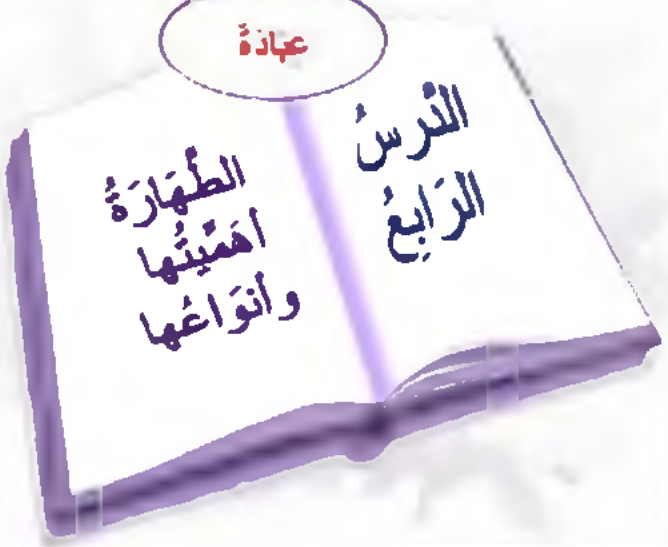 عبادَةٌ
الدَّرسُ
الرَابِعُ
الطَّهَارَةُ
أهَمِّيَّتُها
وأنوَاعُها